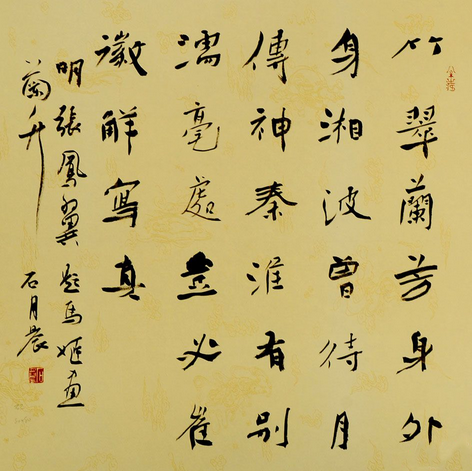 竹翠蘭芳身外
身湘波曾待月
傳神秦淮有別
濡毫處豈必崔
徽解寫真
明張鳳翼題馬姬畫
蘭卉 石月